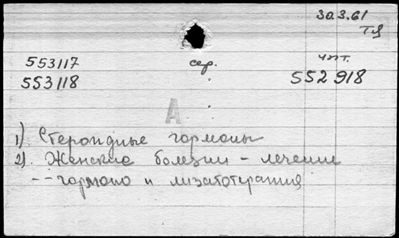 30.3.61
ТЯ
553117 сер. чит.
553118 552918
А
1) Стероидные гормоны
2) Женские болезни - лечение
-- гормоно и лизатотерапия